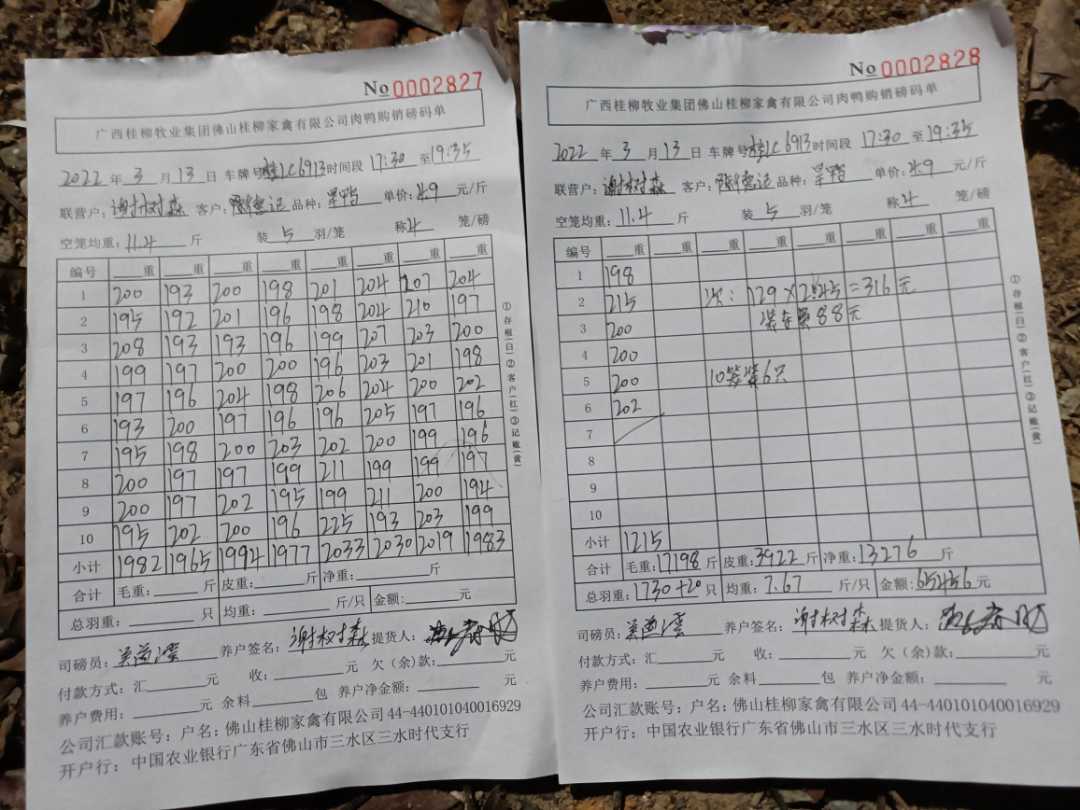 No 0002827
广西桂柳牧业集团佛山桂柳家禽有限公司肉鸭购销磅码单
2022 年 3 月 13 日 车牌号 桂LC6913 时间段 17:30 至 19:35
联营户: 谢树森 客户: 品种: 单价: 4.9 元/斤
空笼均重: 11.4 斤 装 5 羽/笼 称 4 笼/磅
编号 重 重 重 重 重 重 重 重
1 200 193 200 198 201 204 207 204
2 195 192 201 196 198 204 210 197
3 208 193 193 196 199 207 203 200
4 199 197 200 200 196 203 201 198
5 197 196 204 198 206 204 200 202
6 193 200 197 196 196 205 197 196
7 195 198 200 203 202 200 199 196
8 200 197 197 199 211 199 199 197
9 200 197 202 195 199 211 200 194
10 195 202 200 196 225 193 203 199
小计 1982 1965 1994 1977 2033 2030 2019 1983
合计 毛重: 斤 皮重: 斤 净重: 斤
总羽重: 只 均重: 斤/只 金额: 元
司磅员: 养户签名: 谢树森 提货人:
付款方式: 汇 元 收: 元 欠(余)款: 元
养户费用: 元 余料 包 养户净金额: 元
公司汇款账号: 户名: 佛山桂柳家禽有限公司 44-440101040016929
开户行: 中国农业银行广东省佛山市三水区三水时代支行
①存根(白)②客户(红)③记账(黄)
No 0002828
广西桂柳牧业集团佛山桂柳家禽有限公司肉鸭购销磅码单
2022 年 3 月 13 日 车牌号 桂LC6913 时间段 17:30 至 19:35
联营户: 谢树森 客户: 品种: 单价: 4.9 元/斤
空笼均重: 11.4 斤 装 5 羽/笼 称 4 笼/磅
编号 重 重 重 重 重 重 重 重
1 198
2 215 次: 129 × 2.45 = 316元
3 200 88元
4 200
5 200 10笼装6只
6 202
7
8
9
10
小计 1215
合计 毛重: 17198 斤 皮重: 3922 斤 净重: 13276 斤
总羽重: 1730+20 只 均重: 7.67 斤/只 金额: 65456 元
司磅员: 养户签名: 谢树森 提货人:
付款方式: 汇 元 收: 元 欠(余)款: 元
养户费用: 元 余料 包 养户净金额: 元
公司汇款账号: 户名: 佛山桂柳家禽有限公司 44-440101040016929
开户行: 中国农业银行广东省佛山市三水区三水时代支行
①存根(白)②客户(红)③记账(黄)